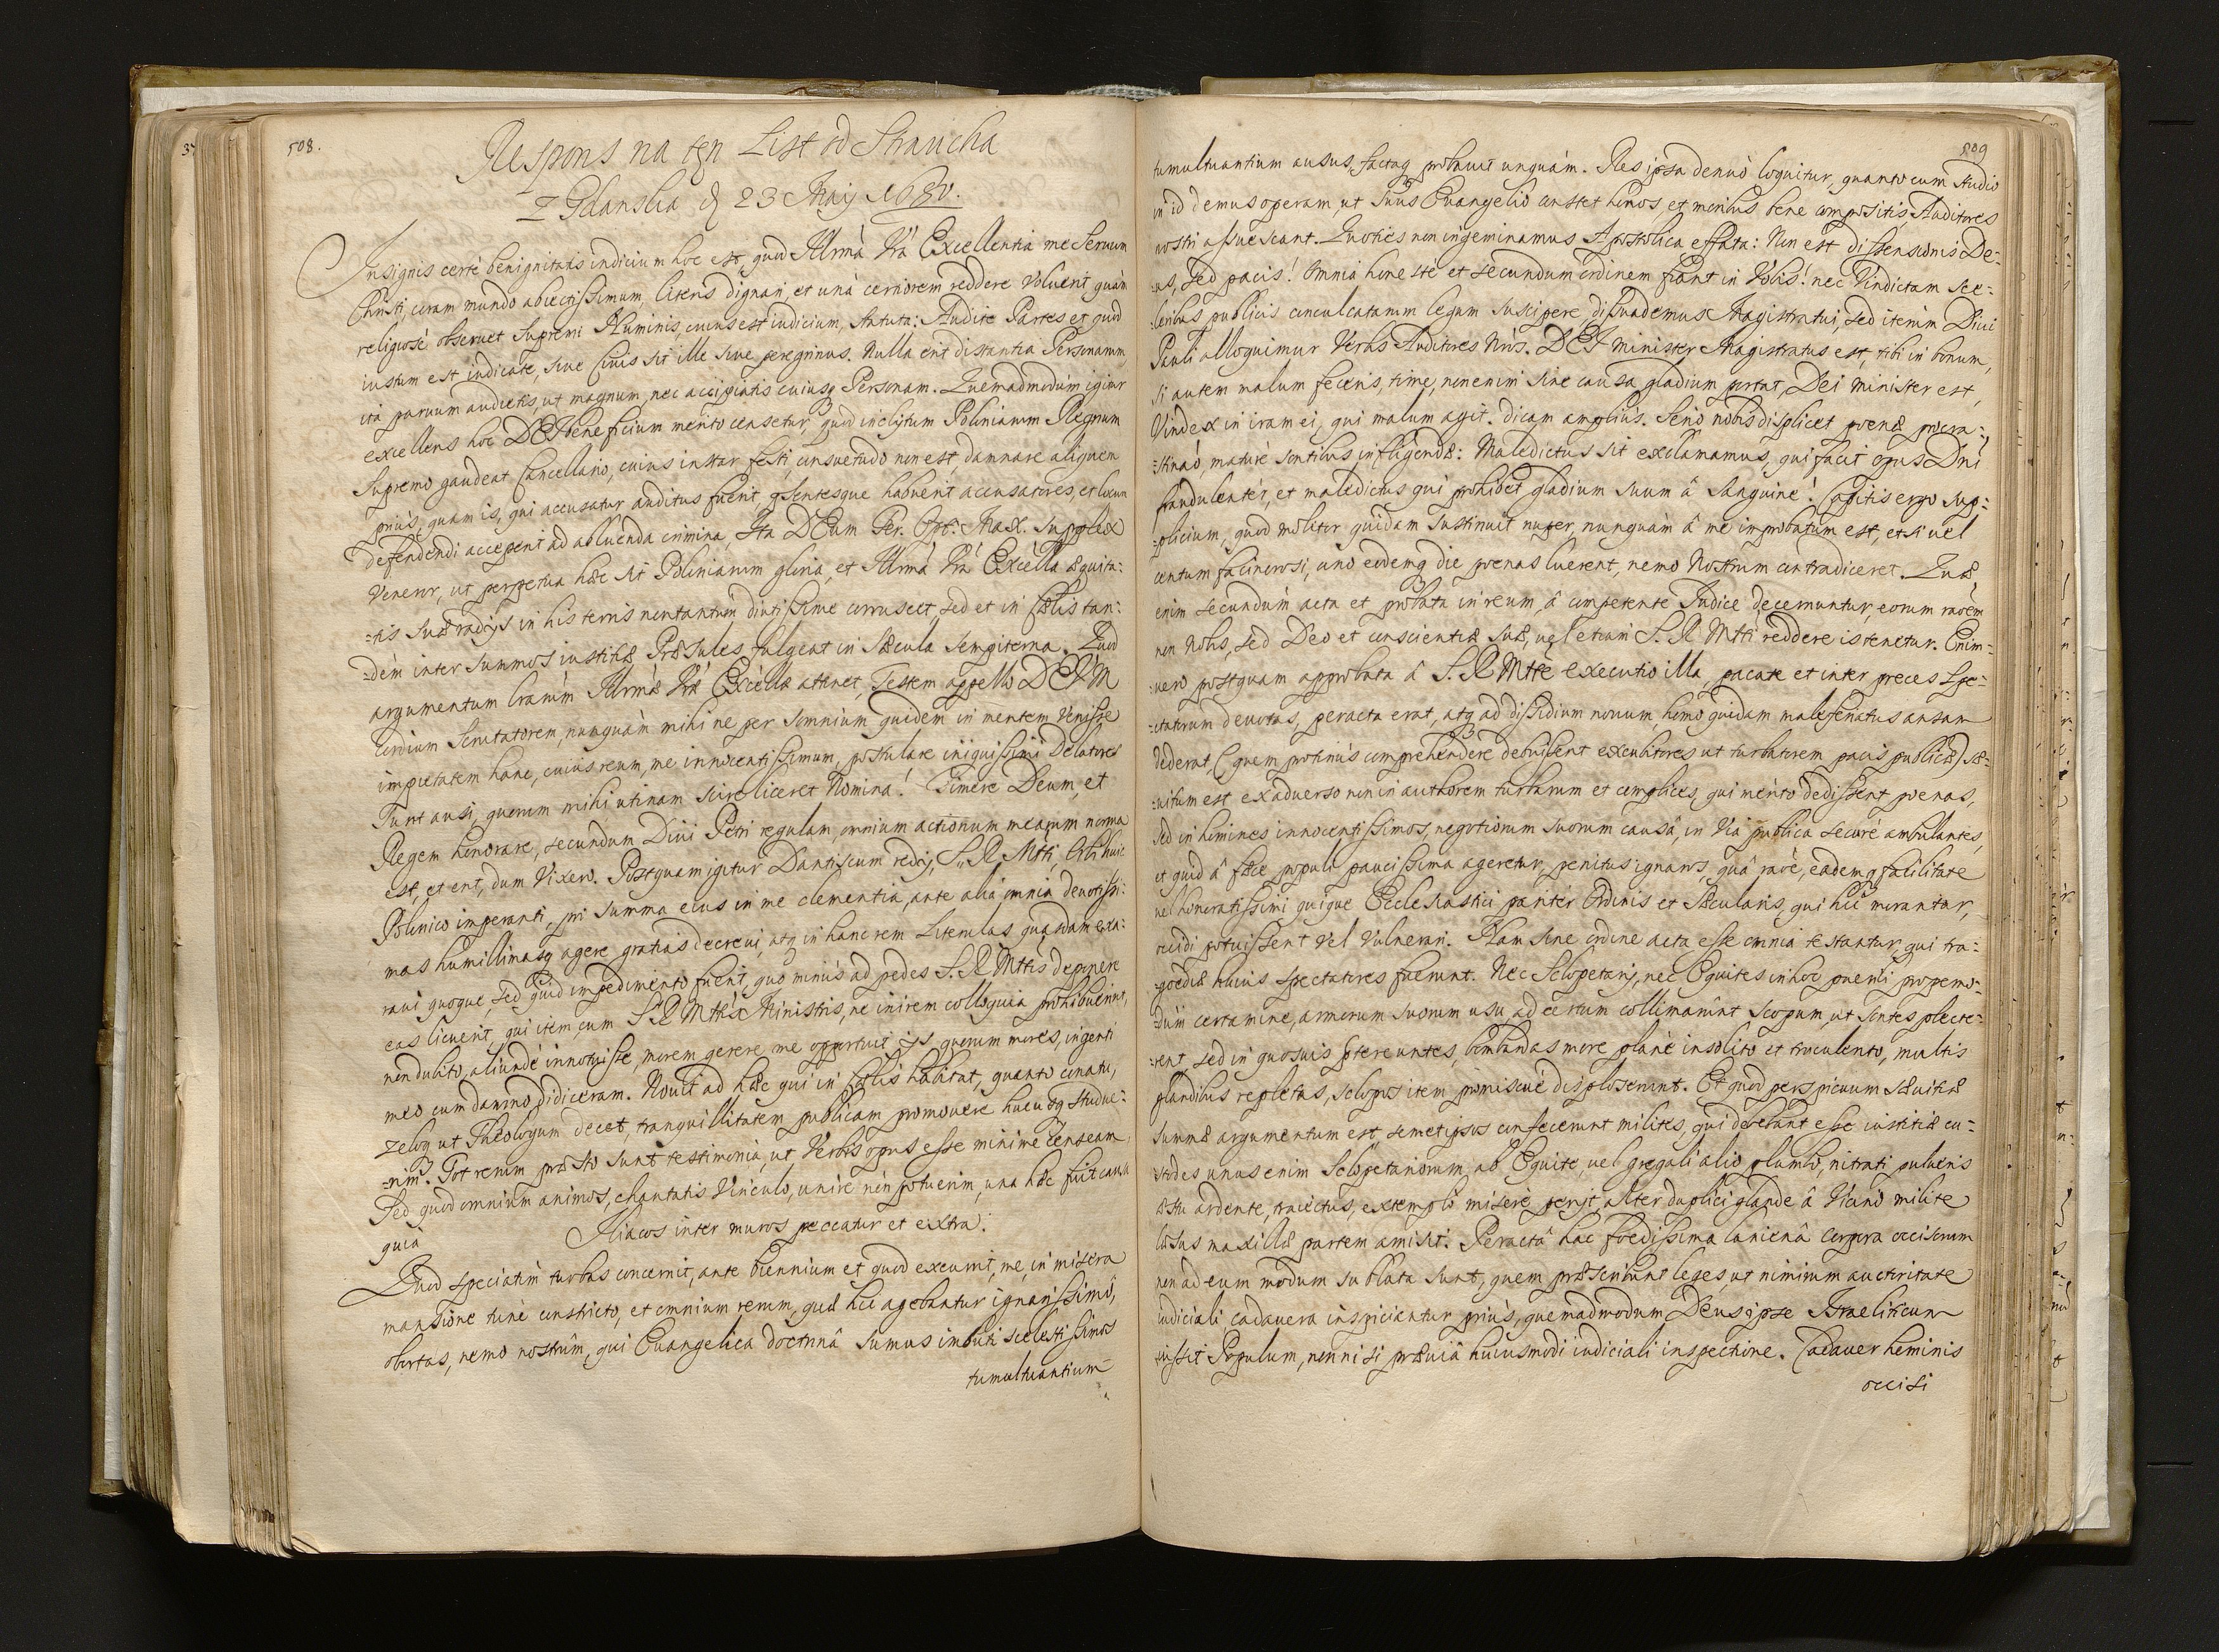 508.
Respons na ten List od Straucha
z Gdanska d. 23 Maij 1680.
Insignis certè benignitatis indicium hoc est, quod Illrmà Vrà Excellentia me Seruum
Christi, coram mundo abiectissimum, literis dignari, et unà certiorem reddere Voluerit, quàm
religiosè obseruet Supremi Numinis, cuius est iudicium, statuta: Audite Partes et quod
iustum est iudicate, siue Ciuis sit ille siue peregrinus. Nulla erit distantia Personarum,
ità paruum audietis, ut magnum, nec accipietis cuiusq Personam. Quemadmodùm igitur
excellens hoc DEI beneficium meritò censetur, quod inclytum Poloniarum Regnum
Supremo gaudeat Cancellario, cuius instar festi, consuetudo non est, damnare aliquem
priùs, quam is, qui accusatur auditus fuerit, pSentesque habuerit accusatores, et locum
defendendi acceperit ad abluenda crimina, Ita DEum Ter. Opt: Max. supplex
Veneror, ut perpetua hæc sit Poloniarum gloria, et Illrmà Vrà Excèlla æquita:
-tis Suæ radijs in his terris nontantùm diutissime corruscet, sed et in Cælis tan:
-dèm inter summos iustitiæ Præsules fulgeat in Sæcula sempiterna. Quod
argumentum lrarùm Illrmæ Vræ Excèllæ attinet, Testem appello DEUM
Cordium Scrutatorem, nunquàm mihi ne per somnium quidem in mentem Venisse
impietatem hanc, cuius reum, me innocentissimum, postulare iniquissimi Delatores
sunt ausi, quorum mihi utinam scire liceret Nomina! Timere Deum, et
Regem honorare, secundum Diui Petri regulam, omnium actionum mearum norma
est, et erit, dum Vixero. Postquam igitur Dantiscum redij, S. R. Mtti, Orbi huic
Polonico imperanti, pri summa eius in me clementia, ante alia omnia deuotissi:
mas humillimasq agere gratias decreui, atq in hanc rem Literulas quasdam exa:
raui quoque, sed quid impedimento fuerit, quo minùs ad pedes S. R. Mttis deponere
eas licuerit, qui item, cum S. R. Mttis Ministris, ne inirem colloquia prohibuerint,
non dubito, aliundè innotuisse, morem gerere me opportuit ijs quorum mores, ingenti
meo cum damno, didiceram. Nouit ad hæc qui in Cælis habitat, quanto conatu,
zeloq ut Theologum decet, tranquillitatem publicam promouere hucusq studue:
-rim. Tot rerum præsto sunt testimonia, ut Verbis opus esse minimè censeam,
Sed quod omnium animos, charitatis Vinculo, unire non potuerim, una hæc fuit causa
quia Iliacos inter muros peccatur et extra.
Quod speciatìm turbas concernit, ante biennium et quod excurrit, me, in misera
mansione tunc constricto, et omnium rerum, quæ hic agebantur ignarissimô,
obortas, nemo nostrûm, qui Euangelica doctrinâ sumus imbuti scelestissimos
tumultuantium
509
tumultuantium ausus, factaq probauit unquàm. Res ipsa denuò loquitur, quanto cum studio
in id demus operam, ut Suus Euangelio constet honos, et moribus bene compositis, Auditores
nostri assuescant. Quoties non ingeminamus Apostolica effata: Non est dissensionis De:
-us, sed pacis! Omnia honeste et secundum ordinem fiant in Vobis! nec Vindictam sce:
-leribus publicis conculcatarum legum suscipere dissuademus Magistratui, sed iterùm Diui
Pauli alloquimur Verbis Auditores Nròs. DEI minister Magistratus est, tibi in bonum,
si autem malum feceris, time, non enim sine causa gladium portat, Dei minister est,
Vindex in iram ei, qui malum agit. Dicam ampliùs. Seriò nobis displicet poenæ procra:
-stinaò, maturè sontibus infligendæ: Maledictus sit exclamamus, qui facit opus Dni
fraudulentèr, et maledictus qui prohibet gladium suum â sanguine! Capitis ergo sup:
-plicium, quod molitor quidam sustinuit nuper, nunquàm â me improbatum est, et si uel
centum facinorosi, uno eodemq die poenas luerent, nemo Nostrum contradiceret. Quæ
enim secundùm acta et probata in reum, â competente Iudice decernuntur, eorum raòèm
non Nobis, sed Deo et conscientiæ suæ, uel etiam S. R. Mtti reddere is tenetur. Enim:
-uero postquam approbata â S. R. Mtte executio illa, pacate et inter preces Spe:
-ctatorum deuotas, peracta erat, atq ad dissidium nouum, homo quidam malesenatus ansam
dederat, (quem protinùs comprehendere debuissent excubitores ut turbatorem pacis publicæ) sæ:
-uitum est ex aduerso non in authorem turbarum et complices, qui meritò dedissent poenas,
sed in homines innocentissimos, negotiorum suorum causâ, in Via publica securè ambulantes,
et quid â fæce populi paucissima ageretur, penitus ignaros, quâ raòe, eademq facilitate
uel honoratissimi quique Ecclesiastici paritèr Ordinis et Sæcularis, qui hic morantur,
occidi potuissent Vel Vulnerari. Nam sine ordine acta esse omnia testantur, qui tra:
-goediæ huius spectatores fuerunt. Nec Sclopetarij, nec Equites in hoc puerili propemo:
-dùm certamine, armorum suorum usu, ad certum collimarûnt scopum, ut sontes plecte:
-rent, sed in quosuis ptereuntes, bombardas more planè insolito et truculento, multis
glandibus repletas, sclopos item promiscuè disploserunt. Et quod perspicuum sæuitiæ
summæ argumentum est, semetipsos confecerunt milites, qui debebant esse iustitiæ cu:
-stodes unus enim Sclopetariorum, ab Equite, uel gregali alio plumbo, nitrati pulueris
æstu ardente, traiectus, extemplô miserè perijt, alter duplici glande â Vicino milite
læsus maxillæ partem amisit. Peractâ hac foedissima lanienâ corpora occisorum
non ad eum modum sublata sunt, quem præscribunt leges, ut nimirum auctoritate
iudiciali cadauera inspiciantur priùs, quemadmodum Deus ipse Israeliticum
iussit Populum, non nisi præuiâ huiusmodi iudiciali inspectione. Cadauer hominis
occisi